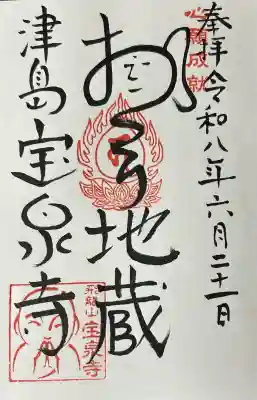 奉拝 令和八年六月二十一日
心願成就
地蔵
津島宝泉寺
宝泉寺